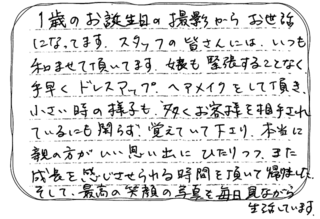 1歳のお誕生日の撮影からお世話
になってます。スタッフの皆さんには、いつも
和ませて頂いてます。娘も緊張することなく
手早くドレスアップ ヘアメイクをして頂き、
小さい時の様子も、多くお客様を相手され
ているにも関らず、覚えていて下さり、本当に
親の方がいい思い出にひたりつつ、また
成長を感じさせられる時間を頂いて帰りました。
そして、最高の笑顔の写真を毎日見ながら
生活しています。